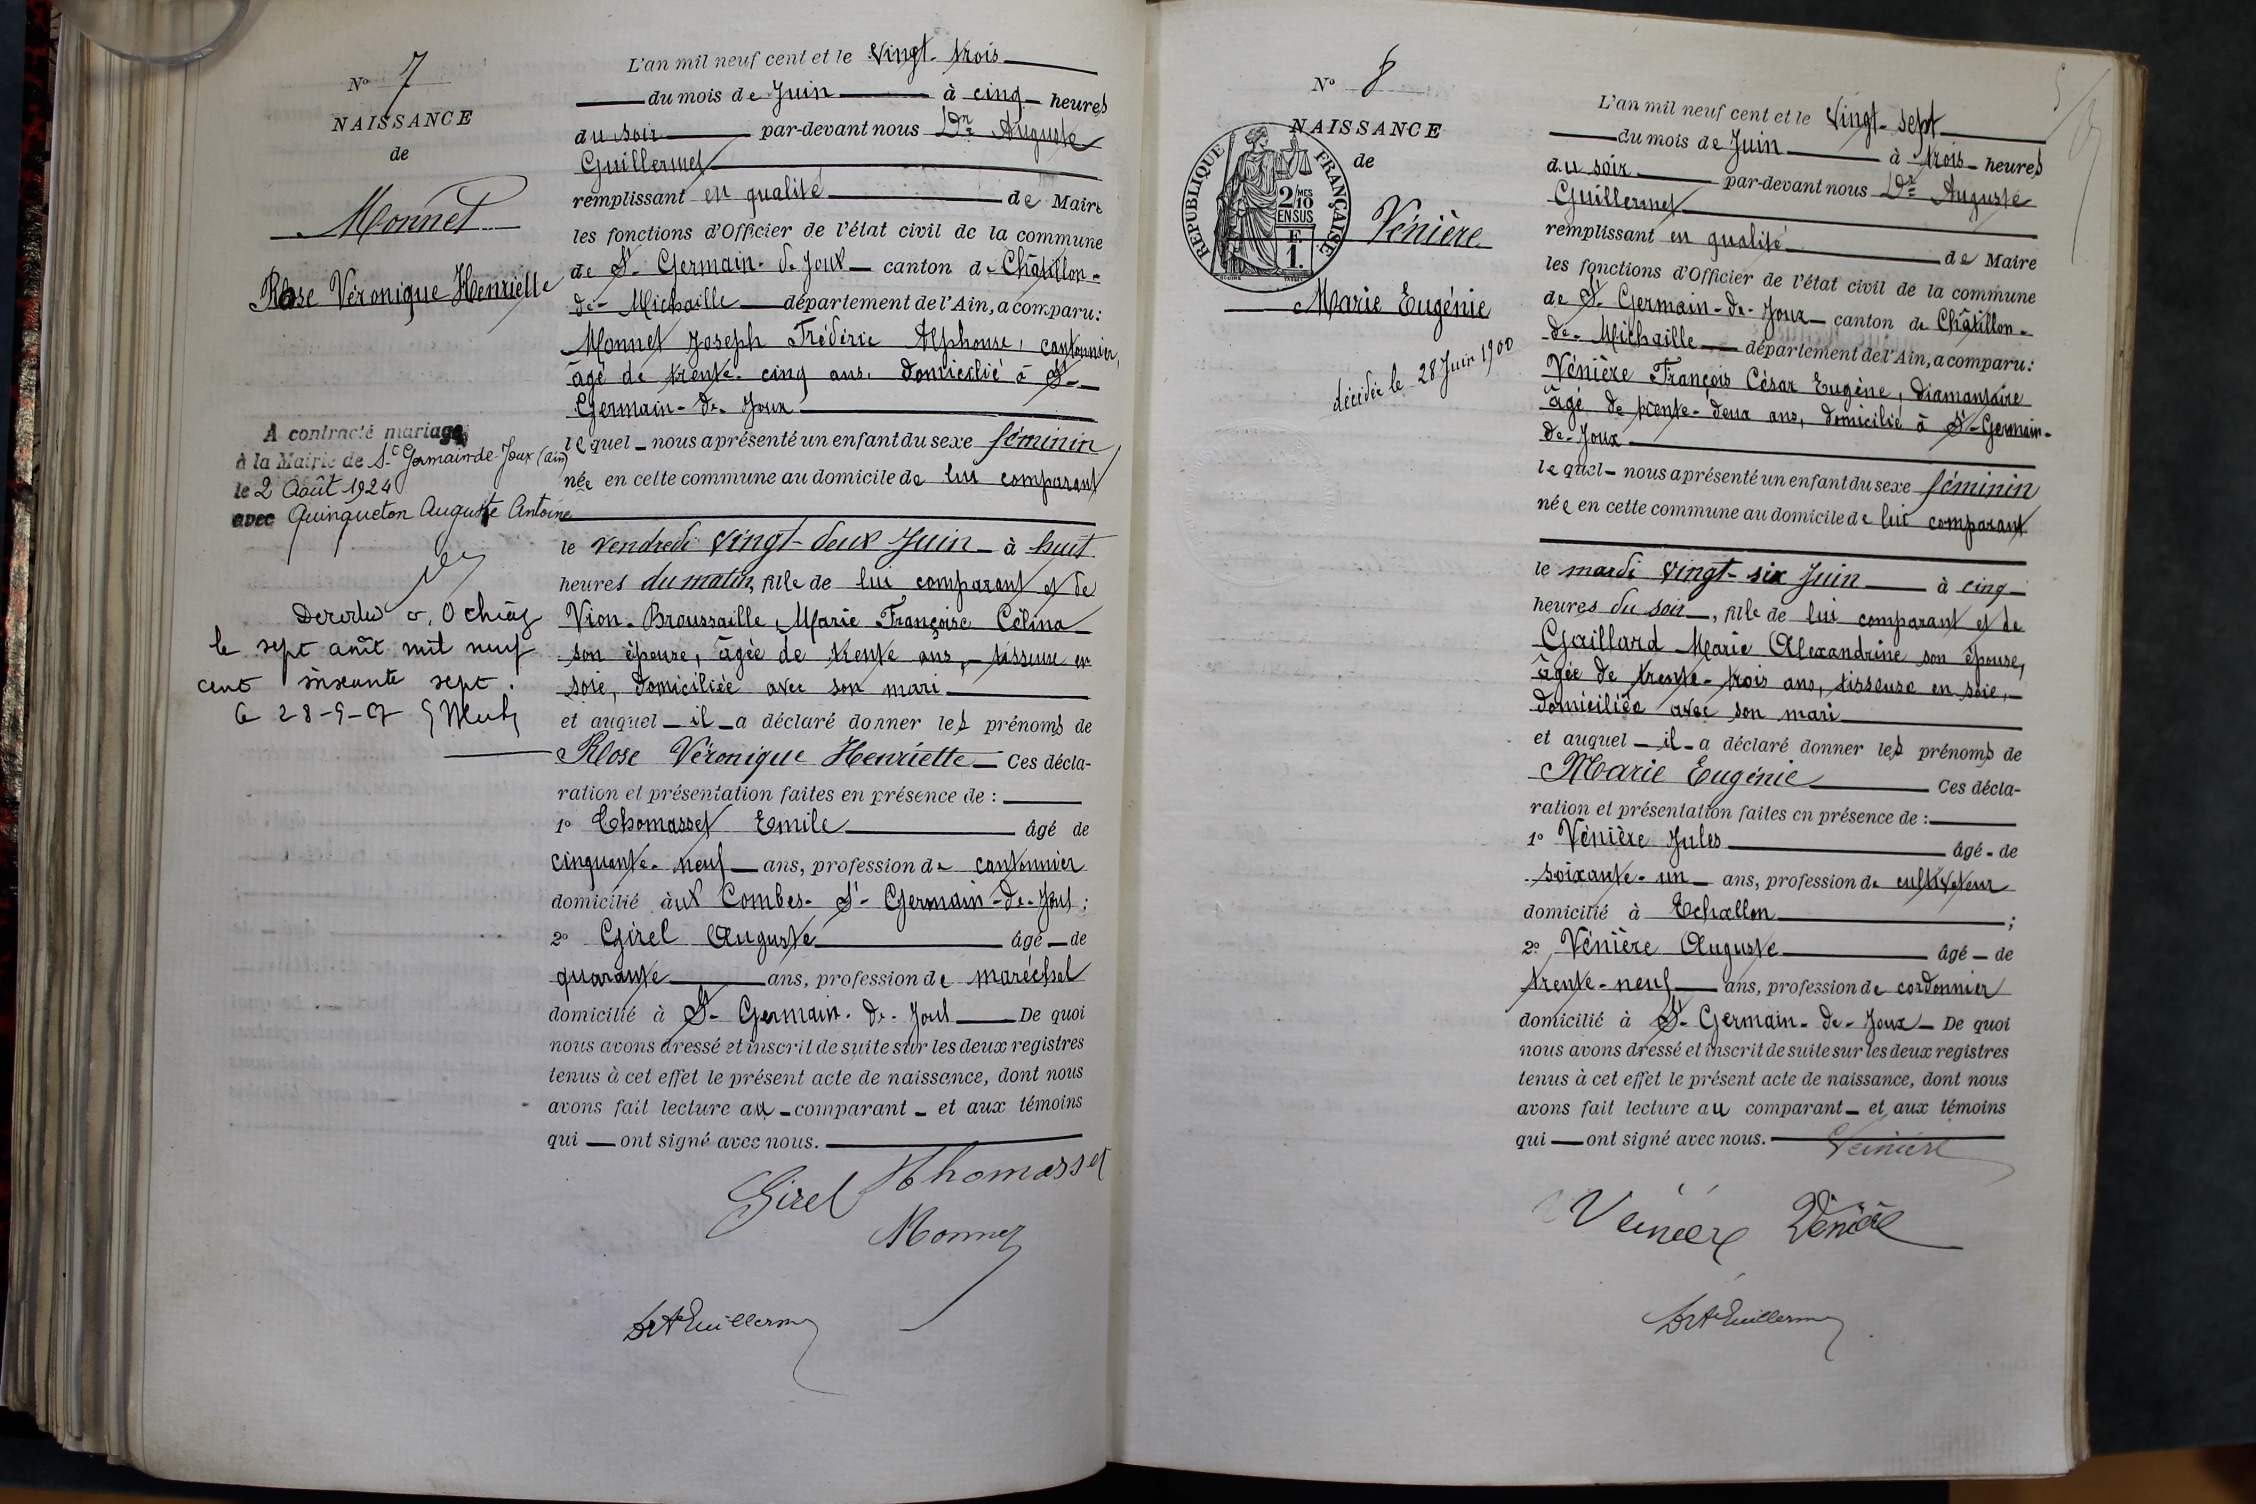 N° 7
NAISSANCE
de
Monnet
Rose Véronique Henriette
A contracté mariage
à la Mairie de St Germain-de-Joux (ain)
le 2 Août 1924
avec Quinqueton Auguste Antoine
à Ochiaz
le sept août mil neuf
cent soixante sept.
Le 28-9-67
L'an mil neuf cent et le vingt-trois
du mois de Juin à cinq heures
du soir par-devant nous Dr Auguste
Guillermet
remplissant en qualité de Maire
les fonctions d'Officier de l'état civil de la commune
de St-Germain-de-Joux canton de Châtillon-
de-Michaille département de l'Ain, a comparu:
Monnet Joseph Frédéric Alphonse, cantonnier,
âgé de trente-cinq ans, domicilié à St-
Germain-de-Joux
lequel nous a présenté un enfant du sexe féminin
née en cette commune au domicile de lui comparant
le vendredi vingt-deux Juin à huit
heures du matin, fille de lui comparant et de
Vion-Broussaille, Marie Françoise Célina
son épouse, âgée de trente ans, tisseuse en
soie, domiciliée avec son mari
et auquel il a déclaré donner les prénoms de
Rose Véronique Henriette Ces décla-
ration et présentation faites en présence de :
1° Thomasset Emile âgé de
cinquante-neuf ans, profession de cantonnier
domicilié aux Combes-St-Germain-de-Joux ;
2° Girel Auguste âgé de
quarante ans, profession de maréchal
domicilié à St-Germain-de-Joux De quoi
nous avons dressé et inscrit de suite sur les deux registres
tenus à cet effet le présent acte de naissance, dont nous
avons fait lecture au comparant et aux témoins
qui ont signé avec nous.
Girel Thomasset
Monnet
Dr A Guillermet
N° 8
NAISSANCE
de
RÉPUBLIQUE FRANÇAISE
2/10 MES
EN SUS
F.
1.
Vénière
Marie Eugénie
décidée le 28 Juin 1900
5
L'an mil neuf cent et le vingt-sept
du mois de Juin à trois heures
du soir par-devant nous Dr Auguste
Guillermet
remplissant en qualité de Maire
les fonctions d'Officier de l'état civil de la commune
de St-Germain-de-Joux canton de Châtillon-
de-Michaille département de l'Ain, a comparu:
Vénière François César Eugène, diamantaire
âgé de trente-deux ans, domicilié à St-Germain-
de-Joux
lequel nous a présenté un enfant du sexe féminin
née en cette commune au domicile de lui comparant
le mardi vingt-six Juin à cinq
heures du soir, fille de lui comparant et de
Gaillard Marie Alexandrine son épouse,
âgée de trente-trois ans, tisseuse en soie,
domiciliée avec son mari
et auquel il a déclaré donner les prénoms de
Marie Eugénie Ces décla-
ration et présentation faites en présence de :
1° Vénière Jules âgé de
soixante-un ans, profession de cultivateur
domicilié à Echallon ;
2° Vénière Auguste âgé de
trente-neuf ans, profession de cordonnier
domicilié à St-Germain-de-Joux De quoi
nous avons dressé et inscrit de suite sur les deux registres
tenus à cet effet le présent acte de naissance, dont nous
avons fait lecture au comparant et aux témoins
qui ont signé avec nous.
Veinière
Veinière Vénière
Dr A Guillermet